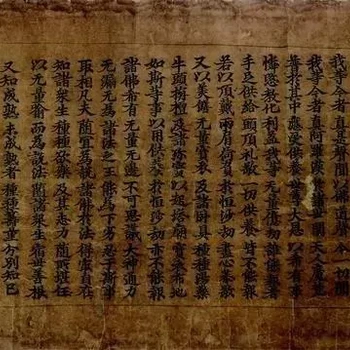 我等今者真是聲聞以佛道聲令一切聞
我等今者真阿羅漢於諸世間天人魔梵
普於其中應受供養世尊大恩以希有事
憐愍教化利益我等无量億劫誰能報者
手足供給頭頂礼敬一切供養皆不能報
若以頂戴兩肩荷負於恒沙劫盡心恭敬
又以美饍无量寶衣及諸卧具種種湯藥
牛頭栴檀及諸珍寶以起塔廟寶衣布地
如斯等事以用供養於恒沙劫亦不能報
諸佛希有无量无邊不可思議大神通力
无漏无為諸法之王能為下劣忍于斯事
取相凡夫隨宜為說諸佛於法得最自在
知諸衆生種種欲樂及其志力隨所堪任
以无量喻而為說法隨諸衆生宿世善根
又知成熟未成熟者種種籌量分別知已